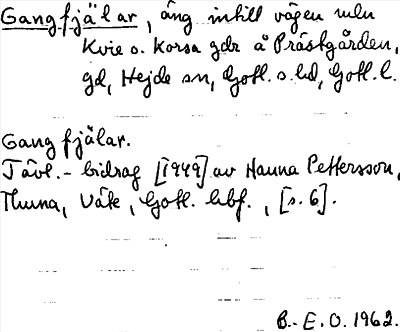 Gangfjälar, äng intill vägen mln
Kvie o. Korsa gdr å Prästgården,
gd, Hejde sn, Gotl. s. hd, Gotl. l.
Gangfjälar.
Tävl.-bidrag [1949] av Hanna Pettersson,
Thuna, Väte, Gotl. hbf., [s. 6].
B.-E. O. 1962.